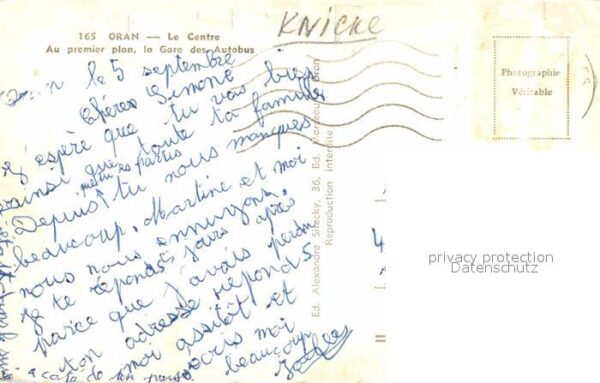 KNICKE
165 ORAN — Le Centre
Au premier plan, la Gare des Autobus
Photographie
Véritable
le 5 septembre
Chères Simone
J'espère que tu vas bien
ainsi que toute ta famille
Depuis que tu es partis tu nous manques
beaucoup, Martine et moi
nous nous ennuyons
Je te réponds 5 jours après
parce que j'avais perdu
ton adresse répond
moi assitôt et
écris moi
beaucoup
à cote de
Ed. Alexandre Sirecky, 36, Ed.
Reproduction interdite
privacy protection
Datenschutz